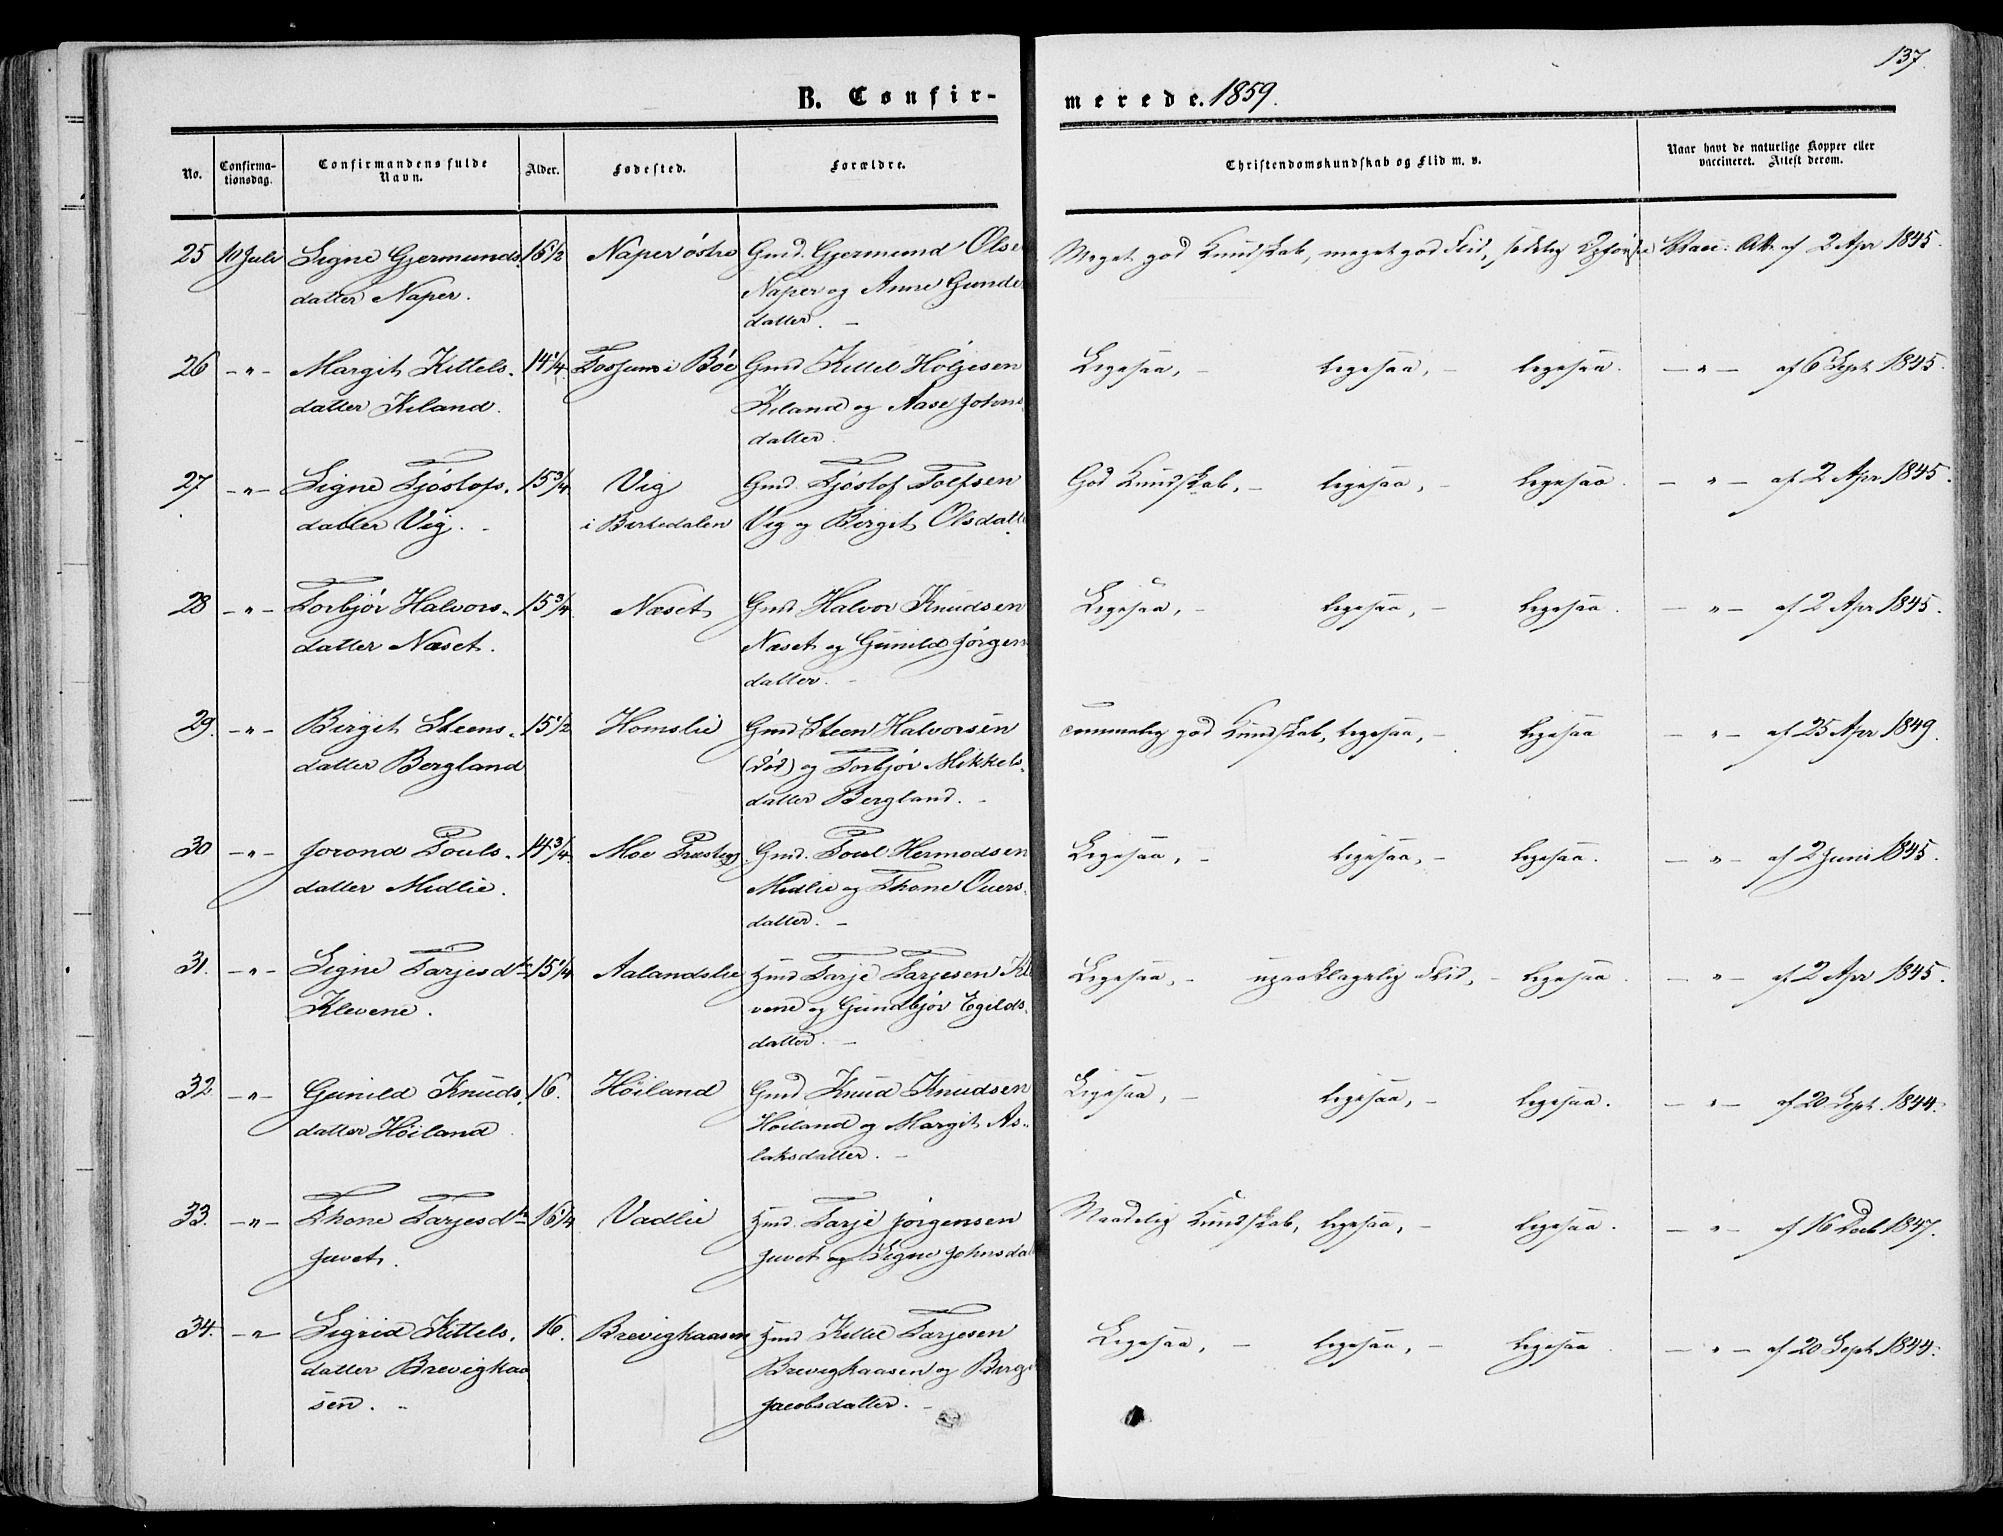 137.
B. Confir-
merede. 1859.
No.
Confirma-
tionsdag.
Confirmandens fulde
Navn.
Alder.
Fødested.
Forældre.
Christendomskundskab og Flid m. v.
Naar havt de naturlige Kopper eller
vaccineret. Attest derom.
25 10 Juli Signe Gjermunds- 16 1/2 Naper østre Gmd. Gjermund Olse Meget god Kundskab, meget god Flid, sædelig Opførsel Vacc. Att. af 2 Apr 1845.
datter Naper. Naper og Anne Gunde
datter. -
26 -"- Margit Kittels- 14 1/4 Fossum i Bøe Gmd Kittel Holjesen Ligesaa, - ligesaa, - ligesaa. -"- af 6 Sept 1845.
datter Kiland. Kiland og Aase Johns
datter.
27 -"- Signe Tjøstofs- 15 3/4 Vig Gmd. Tjøstof Tolfsen God Kundskab, - ligesaa, - ligesaa. -"- af 2 Apr 1845.
datter Vig. - i Birkedalen Vig og Birgit Olsdatt
28 -"- Torbjør Halvors- 15 3/4 Næset Gmd. Halvor Knudsen Ligesaa, - ligesaa, - ligesaa. -"- af 2 Apr 1845.
datter Næset. Næset og Gunild Jørgen
datter. -
29. -"- Birgit Steens- 15 1/2 Homslie Gmd Steen Halvorsen temmelig god Kundskab, ligesaa, - ligesaa -"- af 25 Apr 1849.
datter Bergland (død) og Torbjør Mikkels-
datter Bergland. -
30 -"- Jorond Pouls- 14 3/4 Moe Præsteg. Gmd. Poul Hermodsen Ligesaa, - ligesaa, - ligesaa. -"- af 2 Juni 1845.
datter Midlie. Midlie og Thone Ouers-
datter. -
31. -"- Signe Tarjesdtr 15 1/4 Aalandslie Hmd Tarje Tarjesen Kl Ligesaa, - upaaklagelig Flid, - ligesaa. -"- af 2 Apr 1845.
Klevene. vene og Gundbjør Egilds-
datter. -
32 -"- Gunild Knuds- 16. Høiland Gmd Knud Knudsen Ligesaa, - ligesaa, - ligesaa. -"- af 20 Sept. 1844.
datter Høiland Høiland og Margit As-
laksdatter. -
33. -"- Thone Tarjesdtr 16 1/4 Vadlie Hmd. Tarje Jørgensen Maadelig Kundskab, ligesaa, - ligesaa. -"- af 16 Decb 1847.
Juvet. Juvet og Signe Johnsda
34. -"- Sigrid Kittels- 16. Brevighaasen Hmd Kittel Tarjesen Ligesaa, - ligesaa, - ligesaa. -"- af 20 Sept 1844.
datter Brevighaa- Brevighaasen og Birgi
sen. - Jacobsdatter. -